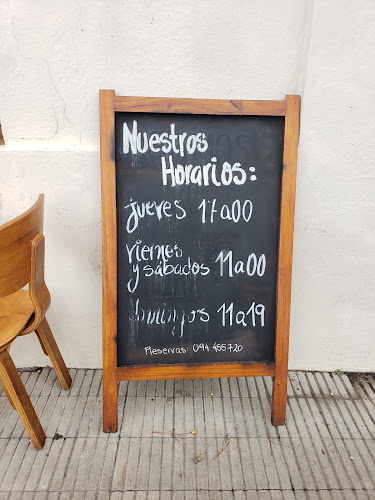 Nuestros
Horarios:
jueves 17a00
viernes
y sábados 11a00
domingos 11a19
Reservas: 094 455720